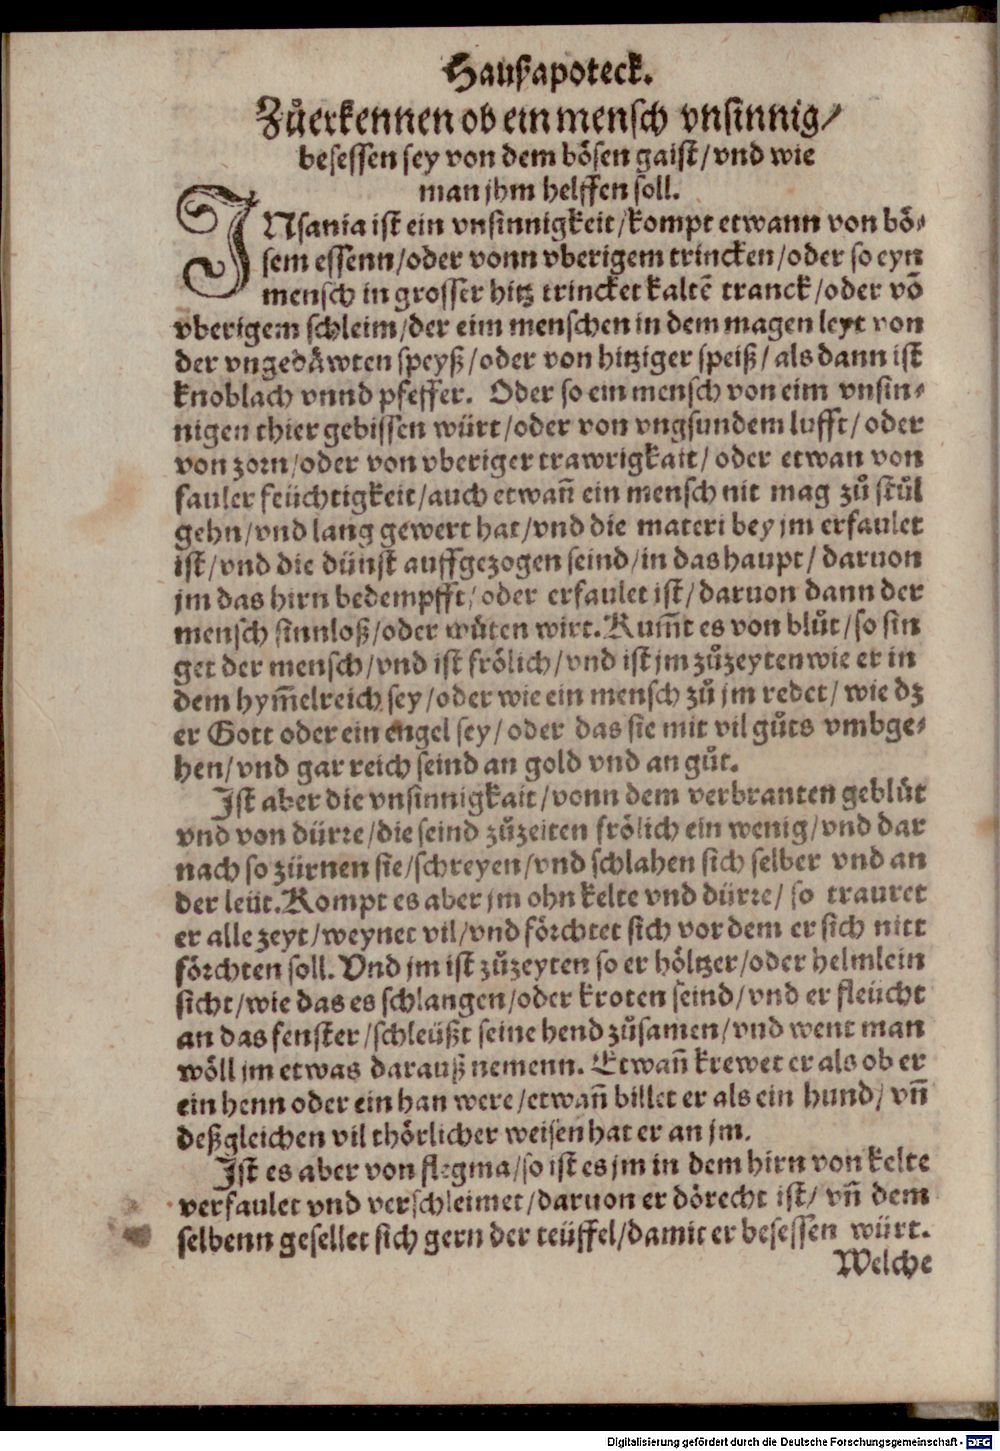 Haußapoteck.
Zůerkennen ob ein mensch vnsinnig/
besessen sey von dem bösen gaist/vnd wie
man jhm helffen soll.
INsania ist ein vnsinnigkeit/kompt etwann von bö-
sem essenn/oder vonn vberigem trincken/oder so eyn
mensch in grosser hitz trincket kaltē tranck/oder vō
vberigem schleim/der eim menschen in dem magen leyt von
der vngedäwten speyß/oder von hitziger speiß/als dann ist
knoblach vnnd pfeffer. Oder so ein mensch von eim vnsin-
nigen thier gebissen würt/oder von vngsundem lufft/oder
von zorn/oder von vberiger trawrigkait/oder etwan von
fauler feüchtigkeit/auch etwañ ein mensch nit mag zů stůl
gehn/vnd lang gewert hat/vnd die materi bey jm erfaulet
ist/vnd die dünst auffgezogen seind/in das haupt/daruon
jm das hirn bedempfft/oder erfaulet ist/daruon dann der
mensch sinnloß/oder wůten wirt. Kum̃t es von blůt/so sin
get der mensch/vnd ist frölich/vnd ist jm zůzeyten wie er in
dem hym̃elreich sey/oder wie ein mensch zů jm redet/wie dz
er Gott oder ein engel sey/oder das sie mit vil gůts vmbge-
hen/vnd gar reich seind an gold vnd an gůt.
Ist aber die vnsinnigkait/vonn dem verbranten geblůt
vnd von dürre/die seind zůzeiten frölich ein wenig/vnd dar
nach so zürnen sie/schreyen/vnd schlahen sich selber vnd an
der leüt. Kompt es aber jm ohn kelte vnd dürre/so trauret
er alle zeyt/weynet vil/vnd förchtet sich vor dem er sich nitt
förchten soll. Vnd jm ist zůzeyten so er höltzer/oder helmlein
sicht/wie das es schlangen/oder kroten seind/vnd er fleücht
an das fenster/schleüßt seine hend zůsamen/vnd went man
wöll jm etwas darauß nemenn. Etwañ krewet er als ob er
ein henn oder ein han were/etwañ billet er als ein hund/vñ
deßgleichen vil thörlicher weisen hat er an jm.
Ist es aber von flegma/so ist es jm in dem hirn von kelte
verfaulet vnd verschleimet/daruon er dörecht ist/vñ dem
selbenn gesellet sich gern der teüffel/damit er besessen würt.
Welche
Digitalisierung gefördert durch die Deutsche Forschungsgemeinschaft - DFG